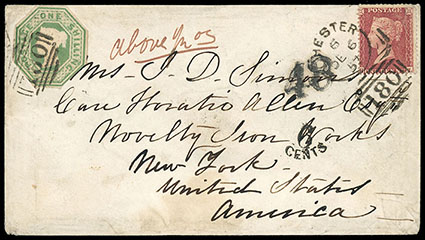 ONE SHILLING
POSTAGE
above ½ oz
CHESTER
180
180
48
Mrs. J. D.
Care Horatio Allen
6
CENTS
Novelty Iron Works
New York
United States
America